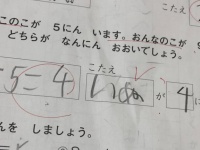 こたえ
このこが 5にん います。おんなのこが 9
どちらが なんにん おおいでしょう。
こたえ
5=4 いぬ が 4
しましょう。